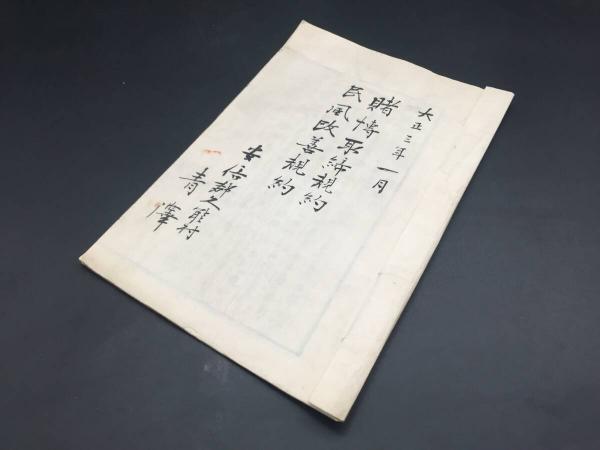 大正三年一月
賭博取締規約
民風改善規約
安倍郡久能村
青澤